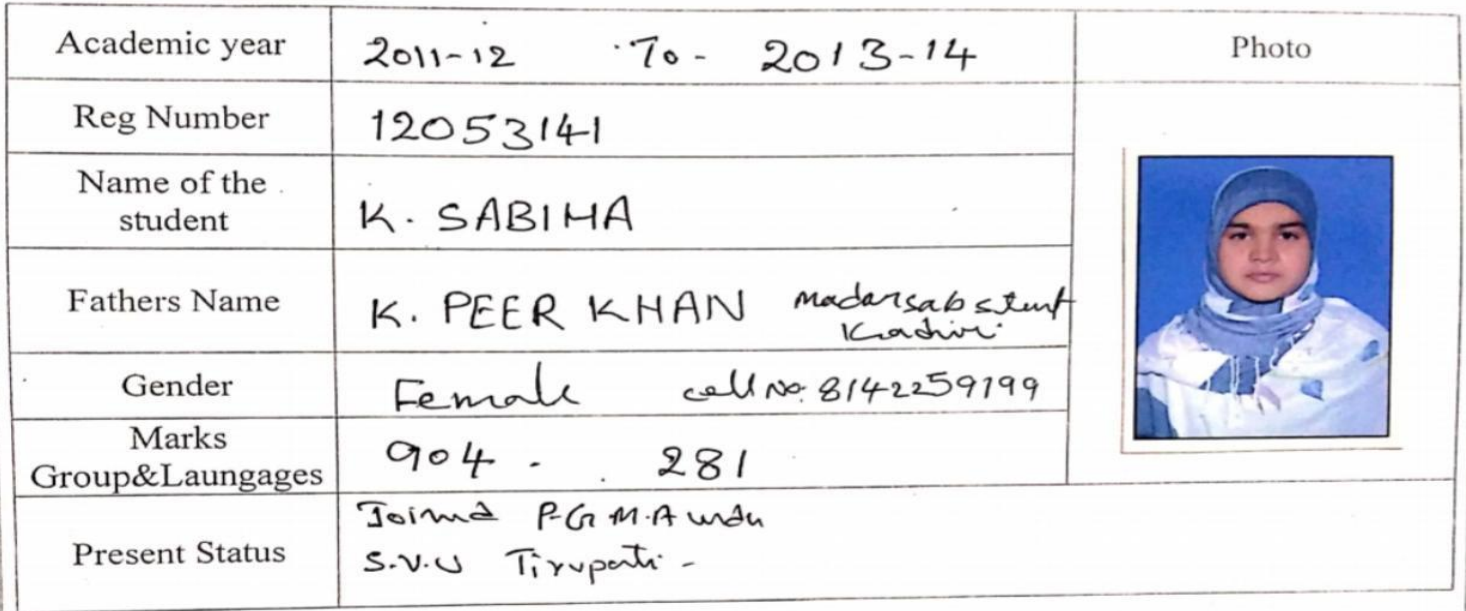 Academic year 2011-12 To - 2013-14 Photo
Reg Number 12053141
Name of the
student K. SABIHA
Fathers Name K. PEER KHAN Madarsab street
Kadiri
Gender Female cell no: 8142259199
Marks
Group&Laungages 904 - 281
Present Status Joined P-G M.A urdu
S.V.U Tirupati -